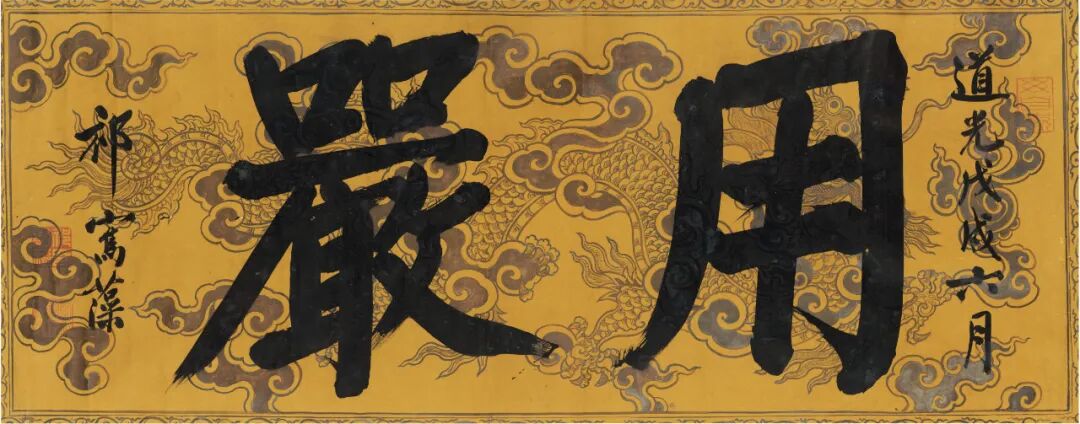 道光戊戌六月
用嚴
祁寯藻